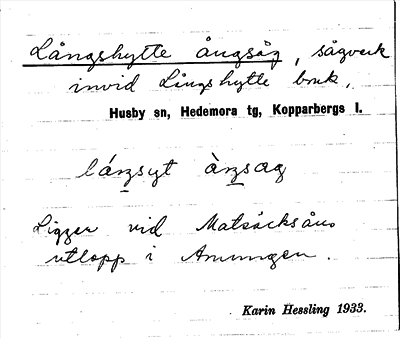 Långshytte ångsåg, sågverk
invid Långshytte bruk.
Husby sn, Hedemora tg, Kopparbergs l.
Ligger vid Matsäcksåns
utlopp i Amungen.
Karin Hessling 1933.